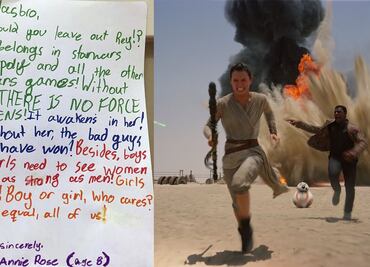 asbro,
ould you leave out Rey!?
belongs in starwars
poly and all the other
rs games! Without
THERE IS NO FORCE
ENS! It awakens in her!
hout her, the bad guys
have won! Besides, boys
rls need to see women
as strong as men! Girls
! Boy or girl, who cares?
equal, all of us!
sincerely,
Annie Rose (age 8)